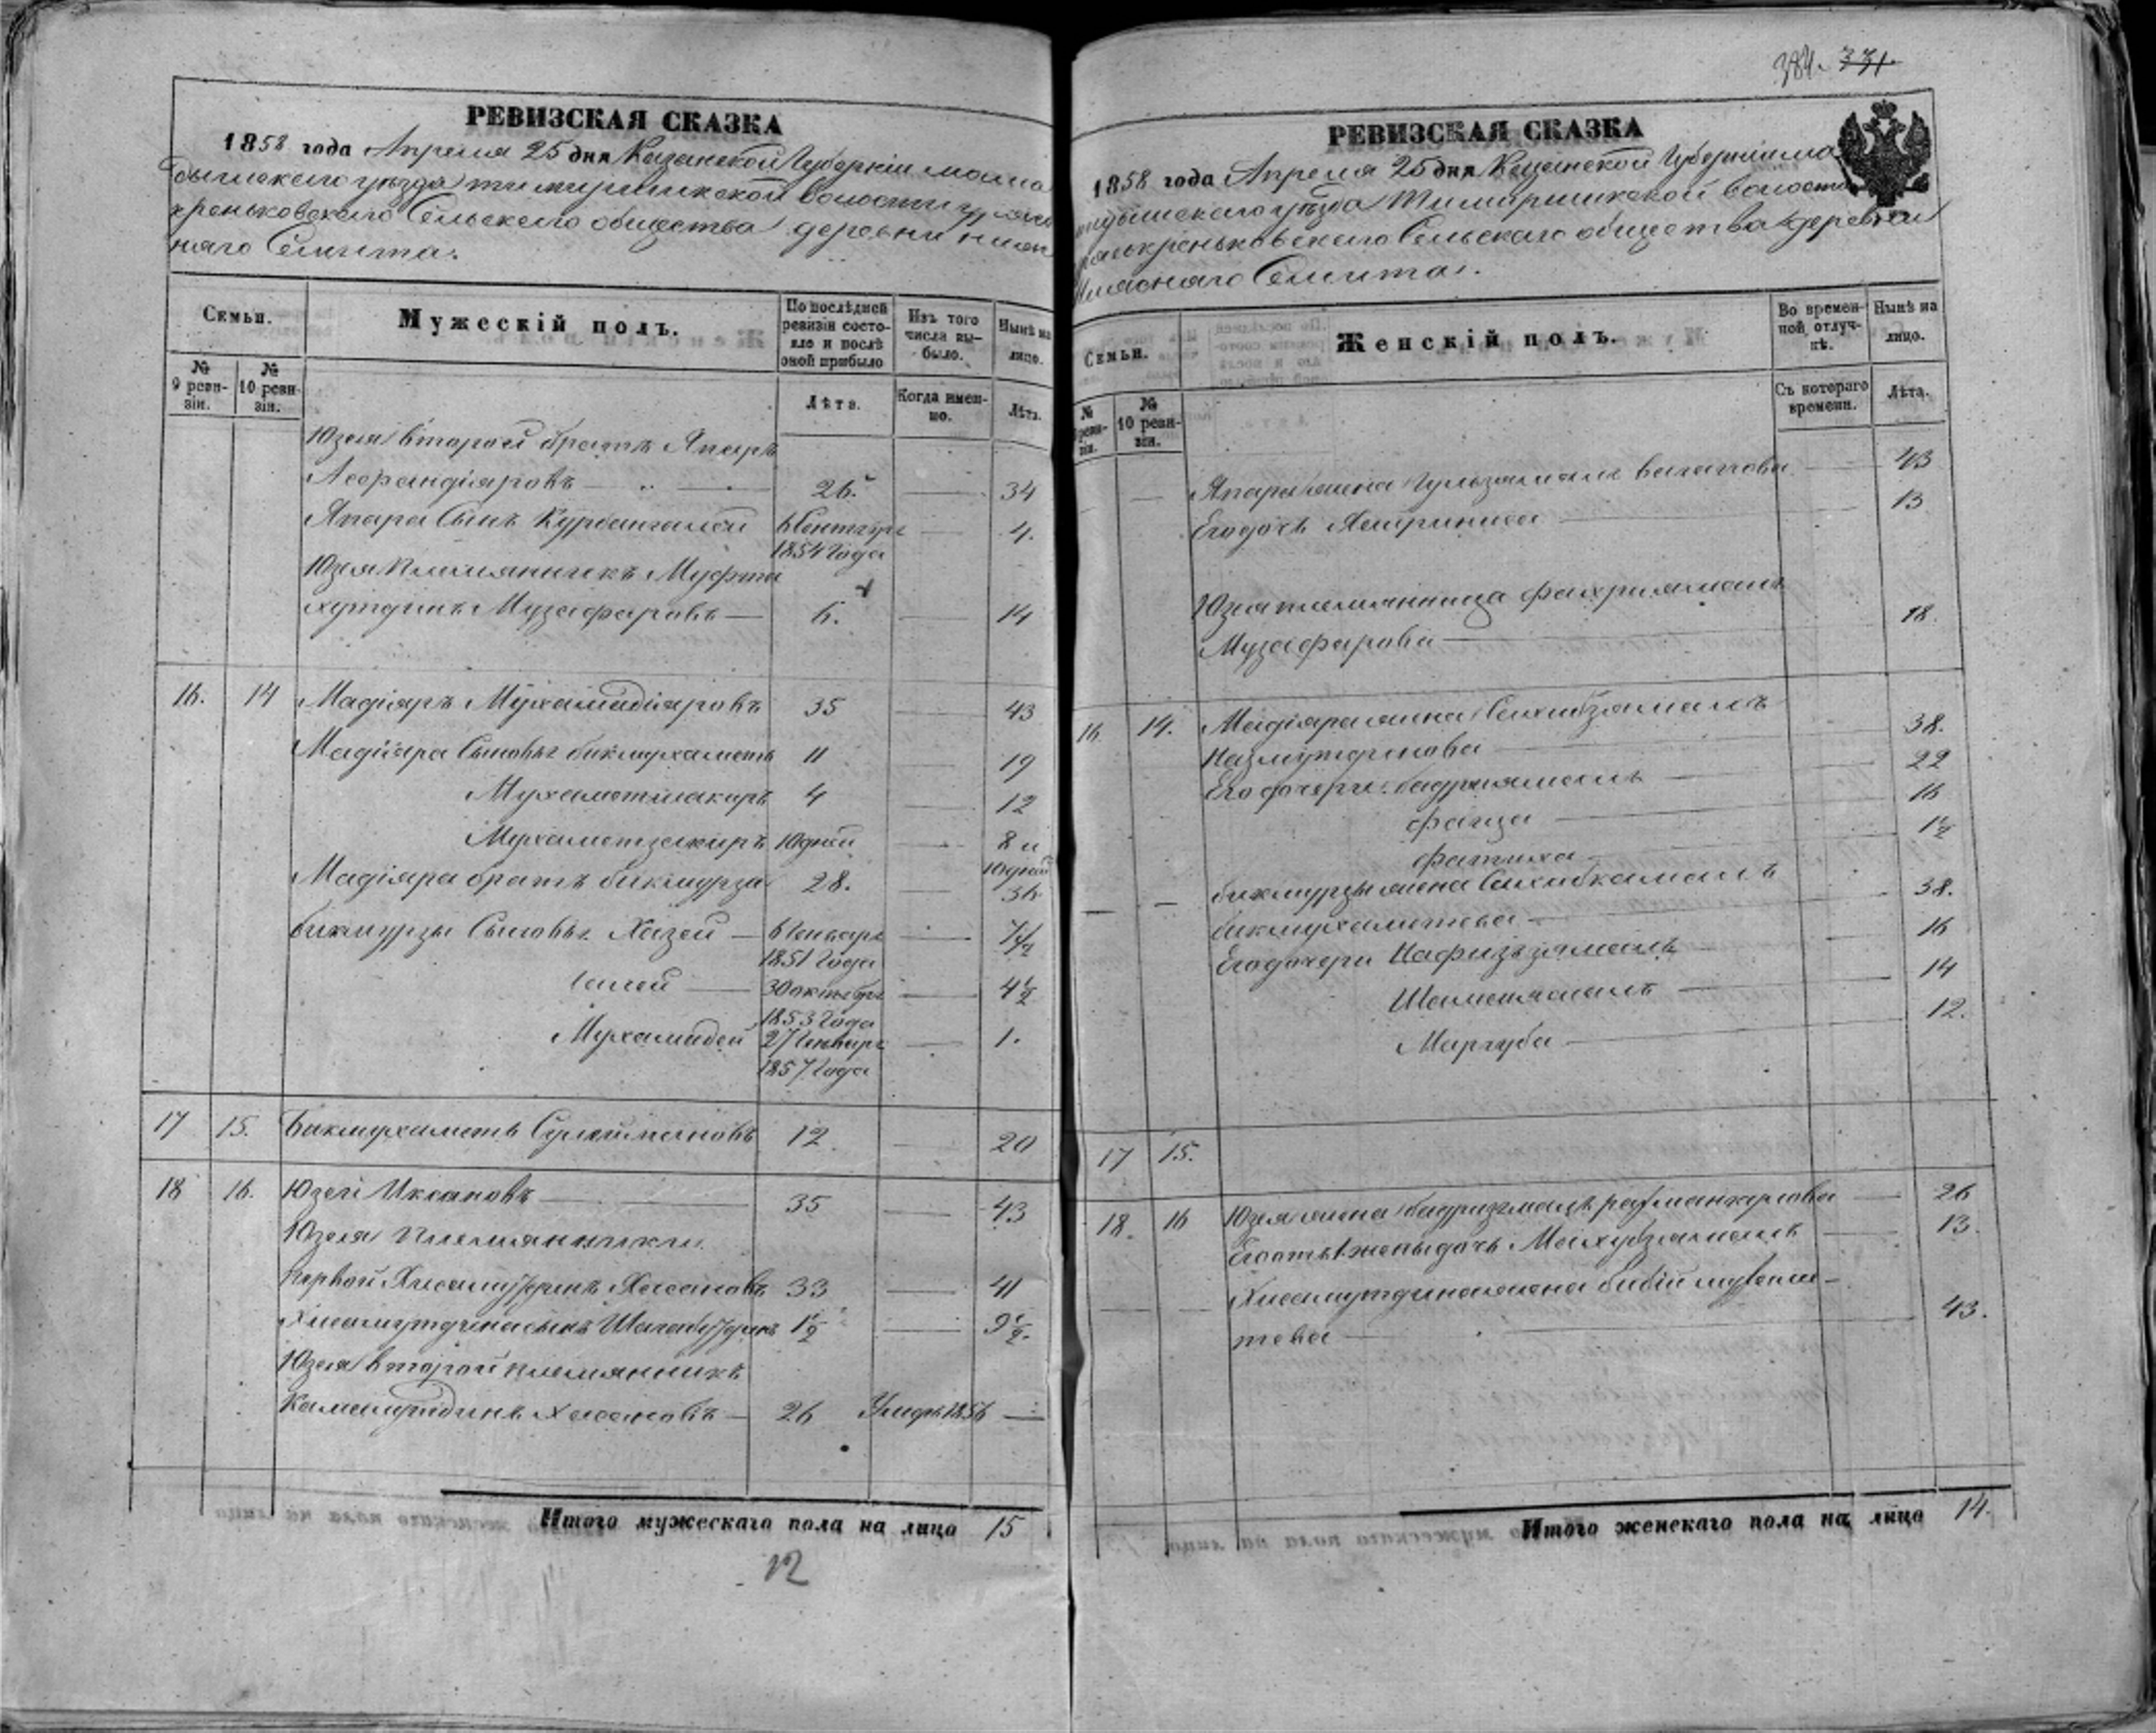 384. 331.
РЕВИЗСКАЯ СКАЗКА
1858 года Апреля 25 дня Казанской Губерніи мама
дышскаго уѣзда тимиршикской волости
хреньковскаго Сельскаго общества деревни
няго Сенита.
Семьи.
Мужескій полъ.
По послѣдней ревизіи состояло и послѣ оной прибыло
Изъ того числа выбыло.
Нынѣ на лицо.
№ 9 ревизіи.
№ 10 ревизіи.
Лѣта.
Когда именно.
Лѣта.
Юзея второй братъ Япаръ
Асфандіяровъ — 26. — 34
Япара Сынъ Курбангалей 6 Сентября 1854 года — 4.
Юзея племянникъ Муфта
хутдинъ Музафаровъ — 6. — 14
16. 14 Мадіяръ Мухамадіяровъ 35 — 43
Мадіяра Сыновья бикмухаметъ 11 — 19
Мухаметшакиръ 4 — 12
Мухаметзакиръ 10 дней — 8 и 10 дней
Мадіяра братъ бикмурза 28. — 36
бикмурзы Сыновья Хазей — 6 Января 1851 года — 7 1/2
Галей — 30 октября 1853 года — 4 1/2
Мухамадей 27 Января 1857 года — 1.
17 15. Бикмухаметъ Сулейменовъ 12. — 20
18 16. Юзей Иксановъ — 35 — 43
Юзея племянники
первой Хисамутдинъ Хасановъ 33 — 41
Хисамутдина сынъ 1 1/2 — 9 1/2.
Юзея второй племянникъ
Камалутдинъ Хасановъ — 26 Умеръ 1856 —
Итого мужескаго пола на лицо 15
12
РЕВИЗСКАЯ СКАЗКА
1858 года Апреля 25 дня Казанской Губерніи ма
мадышскаго уѣзда Тимиршикской волости
хреньковскаго Сельскаго общества деревни
няго Сенита.
Семьи.
Женскій полъ.
Во временной отлучкѣ.
Нынѣ на лицо.
№ ревизіи.
№ 10 ревизіи.
Съ котораго времени.
Лѣта.
— Япара жена Гульзямалъ — 43
Его дочь — 13
Юзея племянница фахриямалъ
Музафарова — 18.
16. 14. Мадіяра жена Сахибзямалъ
Назмутдинова — 38.
Его дочери: бадриямалъ — 22
фаиза — 16
фатиха — 1 1/2
— — бикмурзы жена Сахибкамалъ
бикмухаметева — 38.
Его дочери Нафизъзямалъ — 16
Шамсиямалъ — 14
Маргуба — 12.
17 15.
18. 16 Юзея жена бадризямалъ рахманкулова — 26
Его отъ 1 жены дочь Махубзямалъ — 13.
— — Хисамутдина жена биби
това — 43.
Итого женскаго пола на лицо 14.